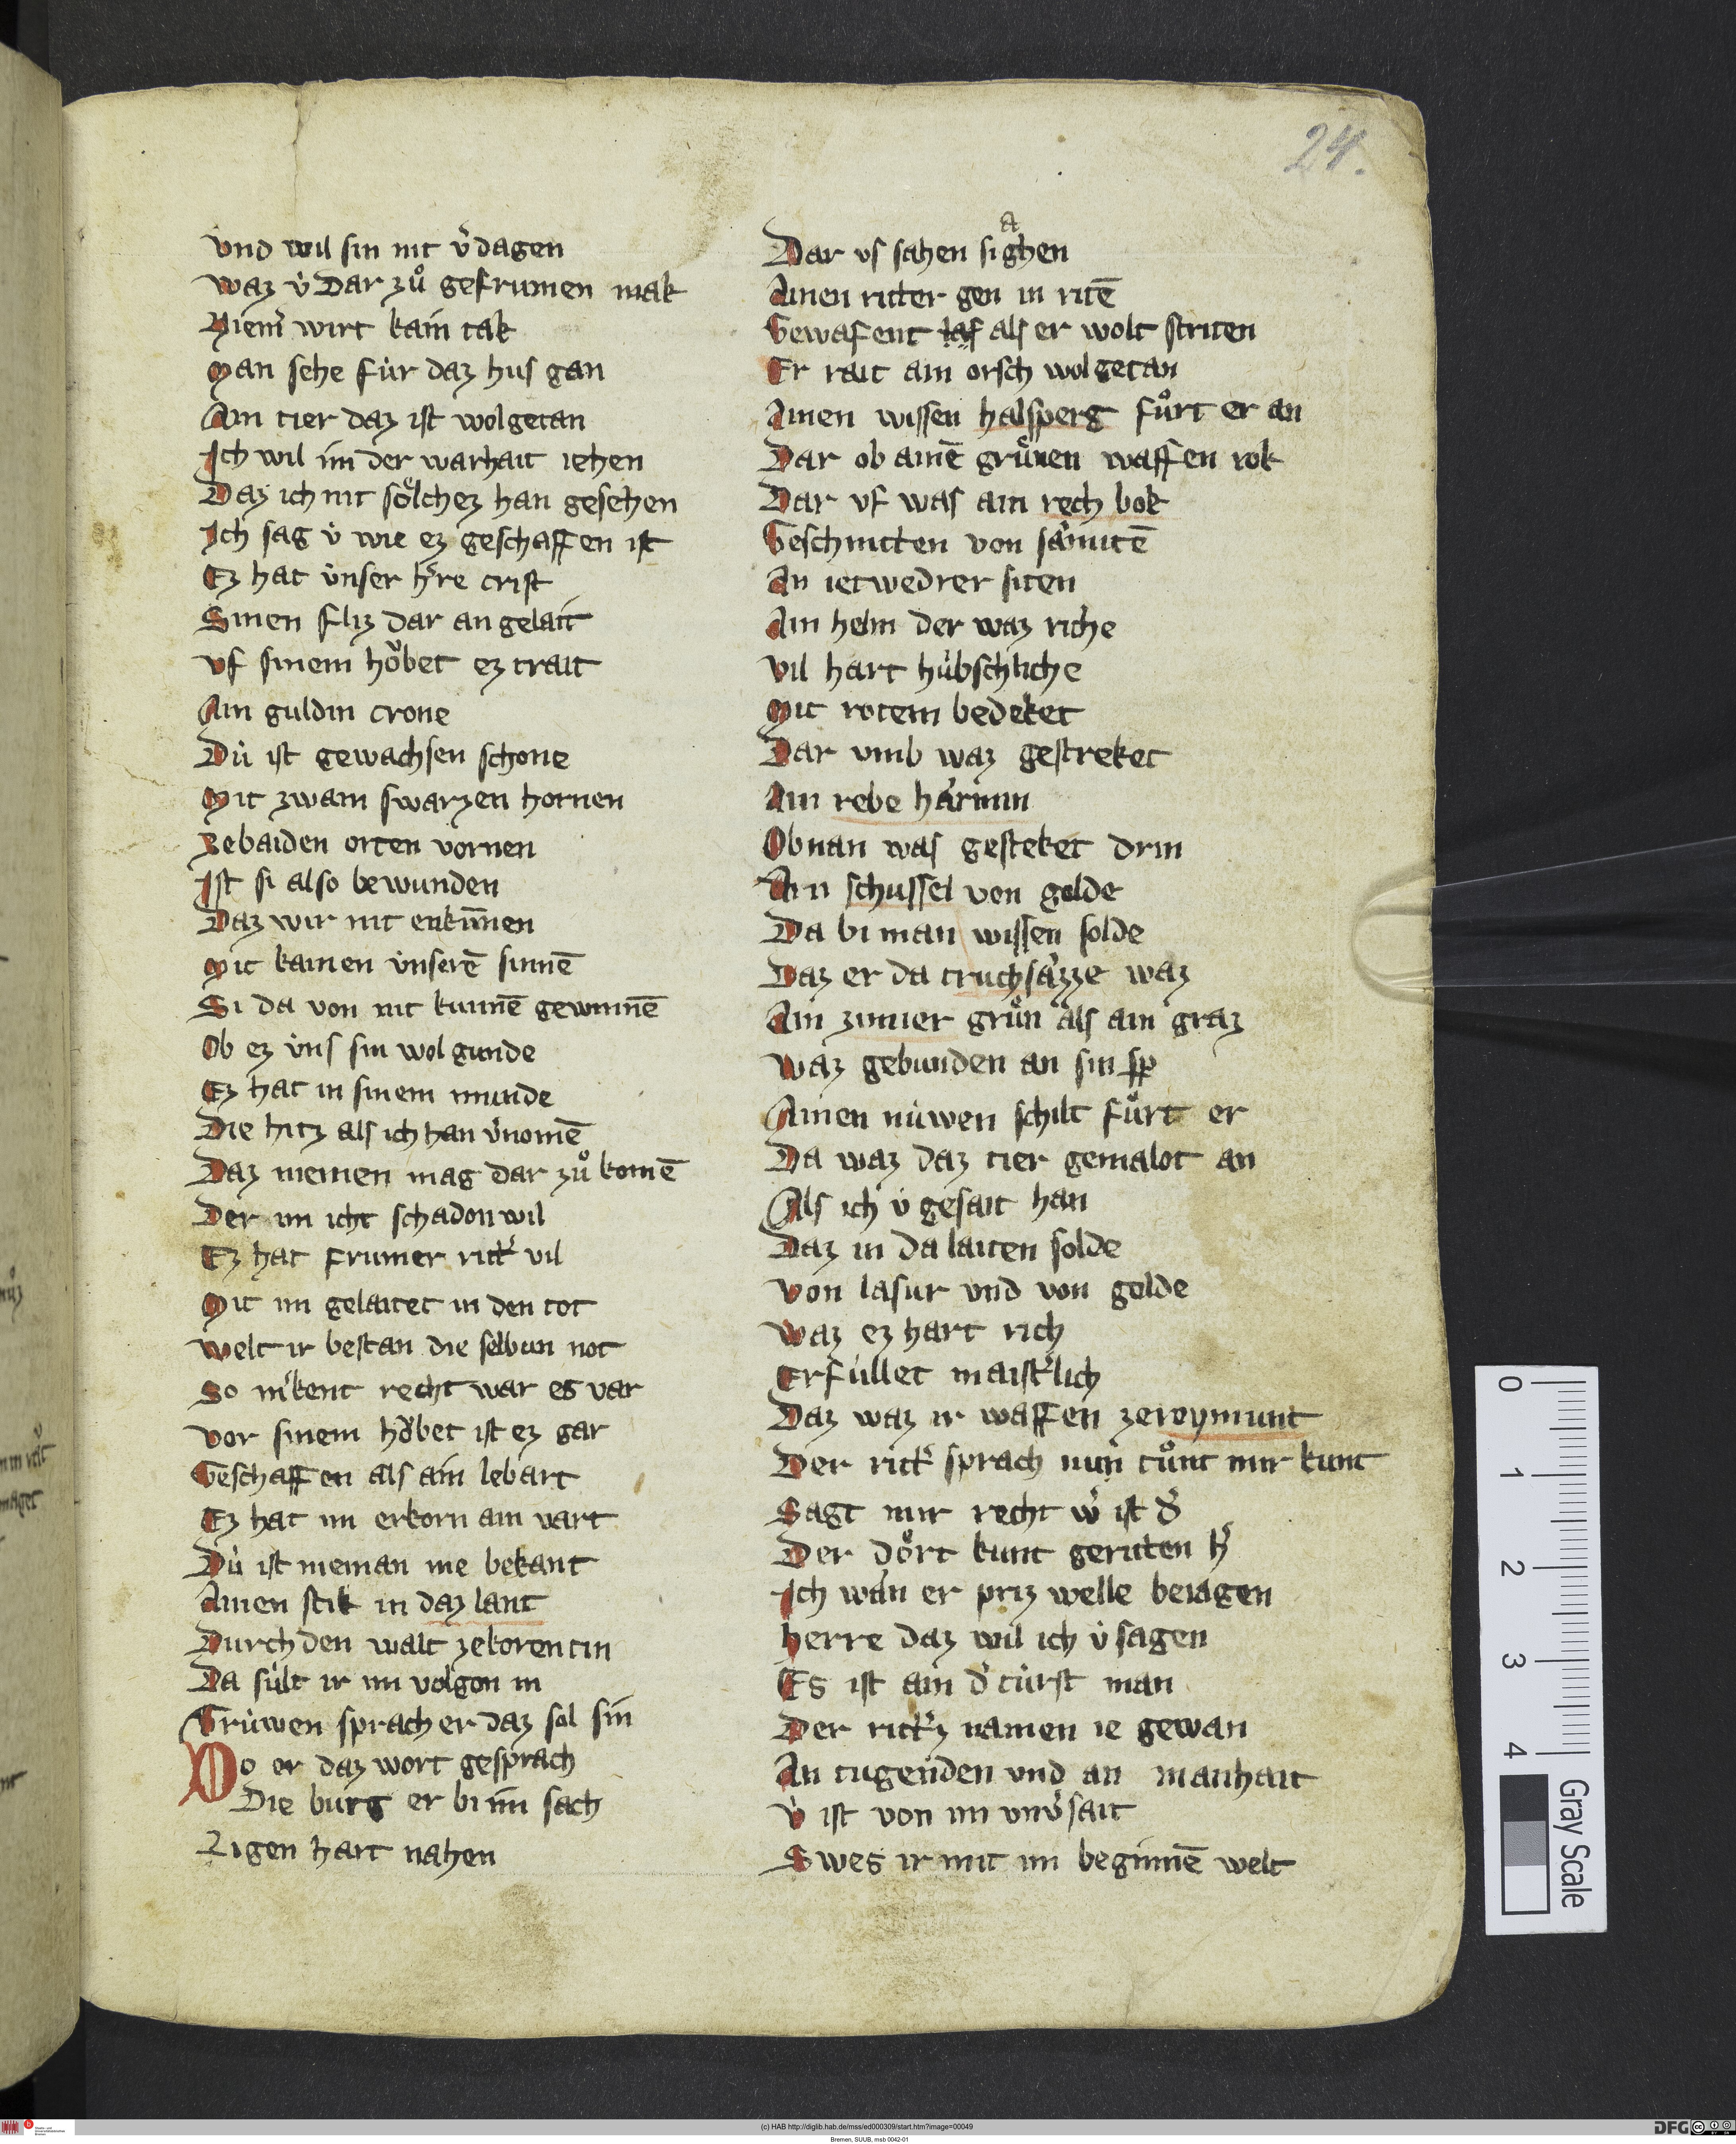 24.
vnd wil sin nit v̾dagen
waz v̍ Dar zů gefrumen mak
Niem̄ wirt kain tak
Man sehe fu̍r daz hus gan
Ain tier daz ist wolgetan
Ich wil im der warhait iehen
Daz ich nit so̍lchez han gesehen
Ich sag v̍ wie ez geschaffen ist
Ez hat v̍nser h̾re crist
Sinen fliz dar an gelait
vf sinem ho̍bet ez trait
Ain guldin crone
Du̍ ist gewachsen schone
Mit zwain swarzen hornen
Zebaiden orten vornen
Ist si also bewunden
Daz wir nit enku̅nen
Mit kainen v̍nserē sinnē
Si da von nit kunnē gewinnē
Ob ez v̍ns sin wol gunde
Ez hat in sinem munde
Die hitz als ich han v̾nomē
Daz niemen mag dar zů komē
Der im icht schadon wil
Ez hat frumer ritt̾ vil
Mit im gelaitet in den tot
welt ir bestan die selbun not
So m̾kent recht war es var
vor sinem ho̍bet ist ez gar
Geschaffen als ain lebart
Ez hat im erkorn ain vart
Du̍ ist nieman me bekant
Ainen stik in daz lant
Durch den walt zekorentin
Da su̍lt ir im volgon in
Tru̍wen sprach er daz sol sin
Do er daz wort gesprach
Die burg er bi im sach
Ligen hart nahen
Dar vs sahen si gahen
Ainen ritter gen in ritē
Gewafent taf als er wolt striten
Er rait ain orsch wolgetan
Ainen wissen halsperg fůrt er an
Dar ob ainē grůnen waffen rok
Dar vf was ain rech bok
Geschnitten von sa̍mitē
An ietwedrer siten
Ain helm der waz riche
vil hart hu̍bschliche
Mit rotem bedeket
Dar vmb waz gestreket
Ain rebe ha̍rmin
Obnan was gesteket drin
Ain schussel von golde
Da bi man wissen solde
Daz er da truchsa̍zze waz
Ain zimier grůn als ain graz
waz gebunden an sin sp̄
Ainen nu̍wen schilt fůrt er
Da waz daz tier gemalot an
Als ich v̍ gesait han
Daz in da laiten solde
von lasur vnd von golde
waz ez hart rich
Erfu̍llet maist̾lich
Daz waz ir waffen zeroymunt
Der ritt̾ sprach nun tůnt mir kunt
Sagt mir recht w̾ ist d̾
Der do̍rt kunt geritten h̾
Ich wa̍n er priz welle beiagen
herre daz wil ich v̍ sagen
Es ist ain d̾ tu̍rst man
Der ritt̾z namen ie gewan
An tugenden vnd an manhait
v̍ ist von im vnv̾sait
Swes ir mit im beginnē welt
0 1 2 3 4
Gray Scale
(c) HAB http://diglib.hab.de/mss/ed000309/start.htm?image=00049
Bremen, SUUB, msb 0042-01
DFG